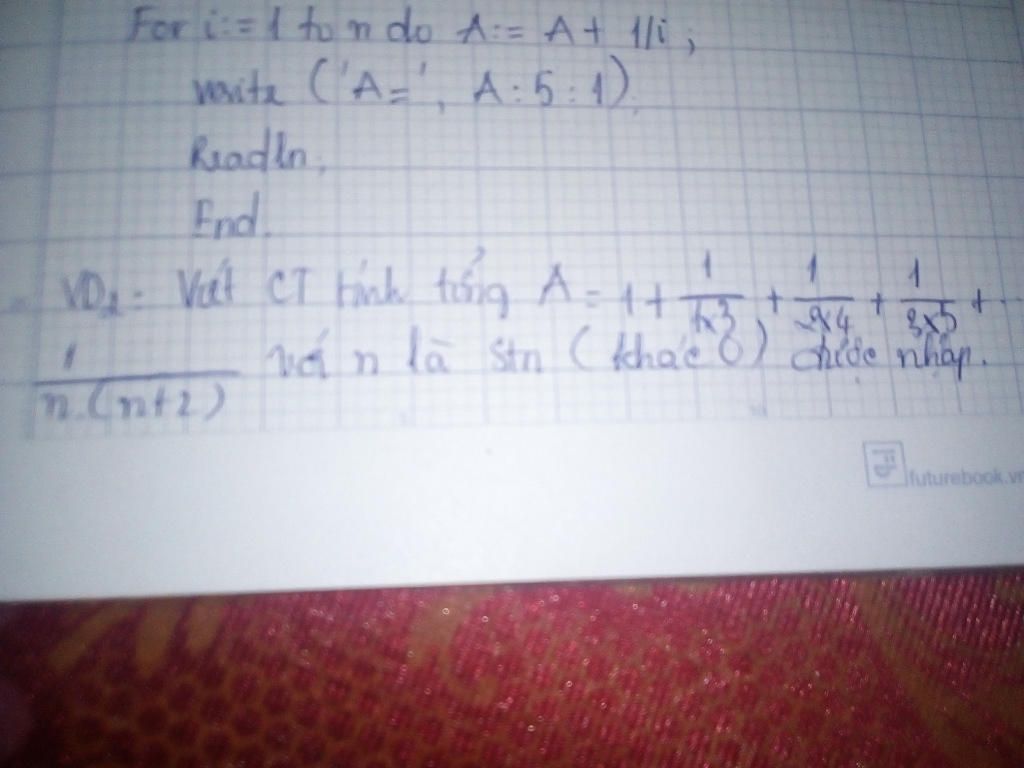 For i:= 1 to n do A:= A + 1/i ;
write ('A=', A : 5 : 1)
Readln;
End.
VD2: Viết CT tính tổng A = 1 + 1/1x3 + 1/2x4 + 1/3x5 + ...
1/n.(n+2) với n là stn (khác 0) được nhập.
futurebook.vn